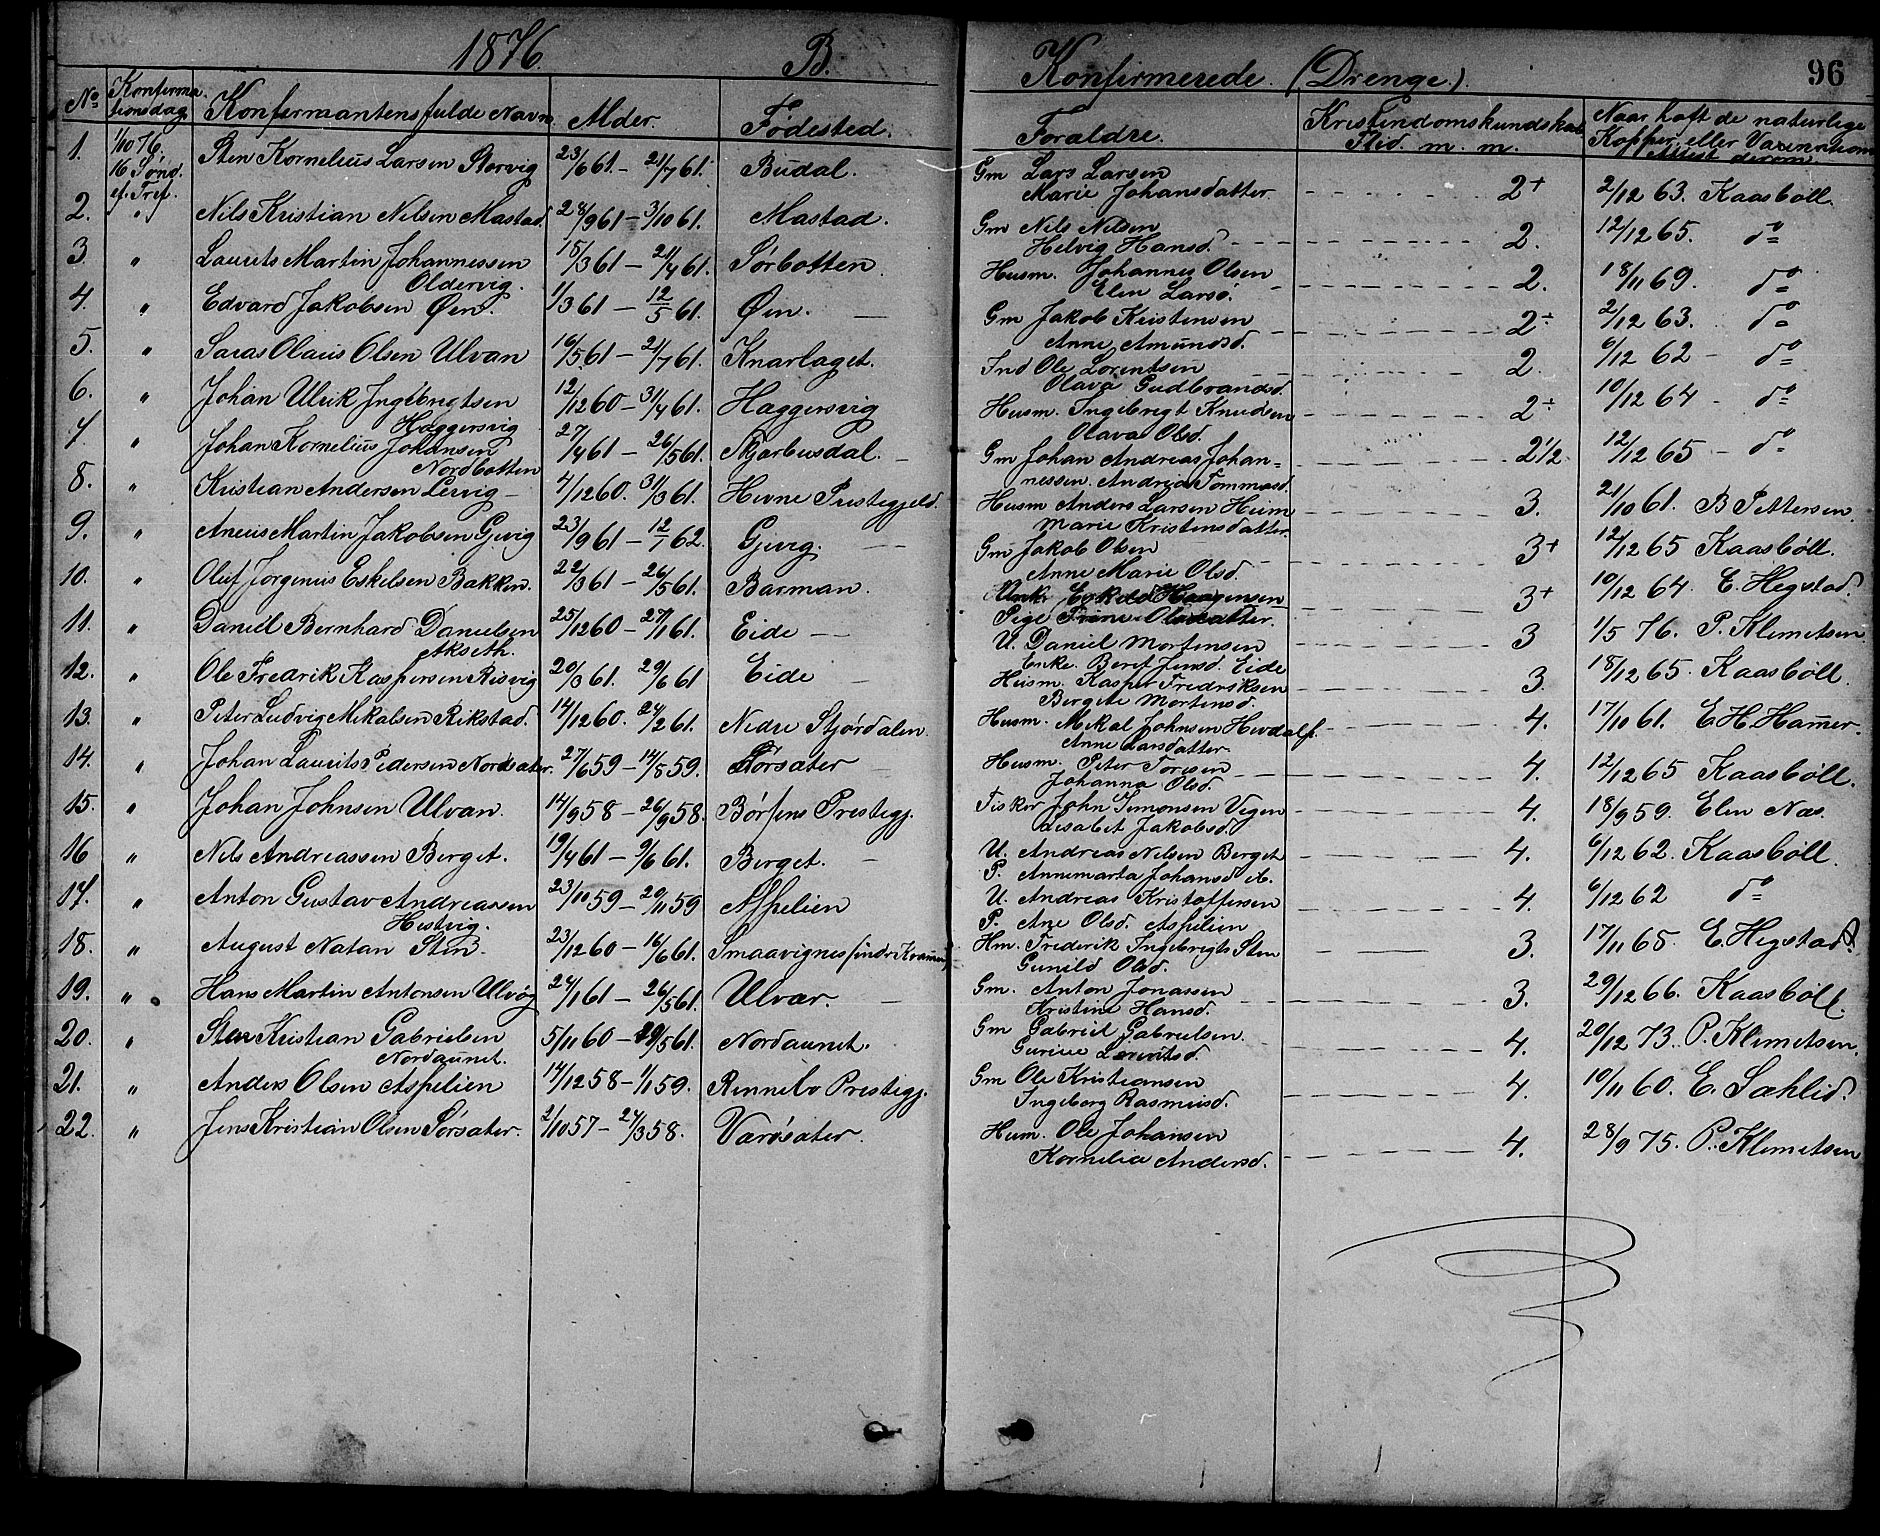 1876. B. Konfirmerede (Drenge). 96
No Konfirmationsdag. Konfirmantens fulde Navn. Alder. Fødested. Forældre. Kristendomskundskab Flid. m. m. Naar haft de naturlige Kopper, eller Vaxinations Attest derom
1. 1/10 76. 16 Sønd. ef. Tref. Sten Kornelius Larsen Storvig 23/6 61. - 21/7 61. Budal. Gm Lars Larsen
Marie Johansdatter 2+ 2/12 63. Kaasböll.
2. " Nils Kristian Nilsen Mastad. 28/9 61 - 3/10 61. Mastad. Gm Nils Nilsen
Helvig Hansd. 2. 12/12 65. do
3. " Laurits Martin Johannessen
Oldervig. 15/3 61 - 21/4 61. Sørbotten Husm. Johannes Olsen
Elen Larsd. 2. 18/11 69. do
4. " Edvard Jakobsen Øen. 1/3 61 - 12/5 61. Øen. Gm Jakob Kristensen
Anne Amundsd. 2÷ 2/12 63. do
5. " Saras Olaus Olsen Ulvan 16/5 61 - 21/7 61. Knarlaget. Ind Ole Lorentsen
Olava Gudbrandsd. 2. 6/12 62 - do
6. " Johan Ulrik Ingebrigtsen
Haggersvig 12/12 60 - 31/4 61. Haggersvig Husm. Ingebrigt Knudsen
Olava Olsd. 2÷ 10/12 64 - do
7. " Johan Kornelius Johansen
Nordbotten 27/4 61 - 26/5 61. Skjarbusdal. Gm Johan Andreas Johan=
nessen. Andrea Tommasd. 2 1/2 12/12 65 - do
8. " Kristian Andersen Lervig - 4/12 60. 31/3 61. Hevne Prestegjeld. Husm Anders Larsen Heim
Marie Kristensdatter 3. 21/10 61. B Pettersen.
9. " Aneus Martin Jakobsen Gjevig 23/9 61 - 12/1 62. Gjevig. Gm Jakob Olsen
Anne Marie Olsd. 3+ 12/12 65 Kaasböll.
10. " Oluf Jørgenius Eskelsen Bakken. 22/3 61 - 26/5 61. Barman. Eskild Haagensen
Pige Olsdatter. 3+ 10/12 64. E. Hegstad.
11. " Daniel Bernhard Danielsen
Akseth. 25/12 60 - 27/1 61. Eide - U. Daniel Mortensen
Enke. Beret Jensd. Eide 3 1/5 76. P. Klemetsen
12. " Ole Fredrik Kaspersen Risvig 20/3 61. 29/6 61 Eide Husm. Kasper Fredriksen
Bergete Mortensd. 3. 18/12 65. Kaasböll.
13. " Peter Ludvig Mikalsen Rikstad. 14/12 60. 24/2 61. Nedre Stjørdalen. Husm. Mikal Johnsen
Anne Larsdatter 4. 17/10 61. E H. Ham̄er.
14. " Johan Laurits Pedersen Nordsater. 27/6 59 - 14/8 59. Sørsater Husm. Peter Toresen
Johanna Olsd. 4. 12/12 65 Kaasböll.
15. " Johan Johnsen Ulvan. 14/9 58 - 26/9 58. Børsens Prestegj. Fisker John Simonsen Vegen
Lisabet Jakobsd. 4. 18/9 59. Elen Næs.
16 " Nils Andreassen Berget. 19/4 61 - 9/6 61. Berget. U. Andreas Nilsen Berget
P. Annemarta Johansd 4. 6/12 62. Kaasböll.
17. " Anton Gustav Andreassen
Hestvig. 23/10 59 - 20/11 59 Aspelien U. Andreas Kristoffersen
P. Ane Olsd. Aspelien 4. 6/12 62 do
18. " August Natan Sten. 23/12 60 - 16/6 61. Smaavignes Hm. Frederik Ingebrigts Sten
Gunild Olsd. 3. 17/11 65. E. Hegstad.
19. " Hans Martin Antonsen Ulvøg 24/1 61 - 26/5 61. Ulvær Gm. Anton Jonassen
Kristine Hansd. 3. 29/12 66. Kaasböll.
20. " Sten Kristian Gabrielsen
Nordaunet. 5/11 60 - 19/5 61. Nordaunet. Gm Gabriel Gabrielsen.
Gurine 4. 20/12 73. P. Klemetsen.
21. " Anders Olsen Aspelien 14/12 58 - 1/1 59. Rennebo Prestegj. Gm Ole Kristiansen
Ingeborg Rasmusd. 4. 10/11 60. E. Sæhlid.
22. " Jens Kristian Olsen Sørsater. 2/10 57 - 24/3 58. Varøsater. Husm. Ole Johansen
Kornelia Andersd. 4. 28/9 75. P. Klemetsen